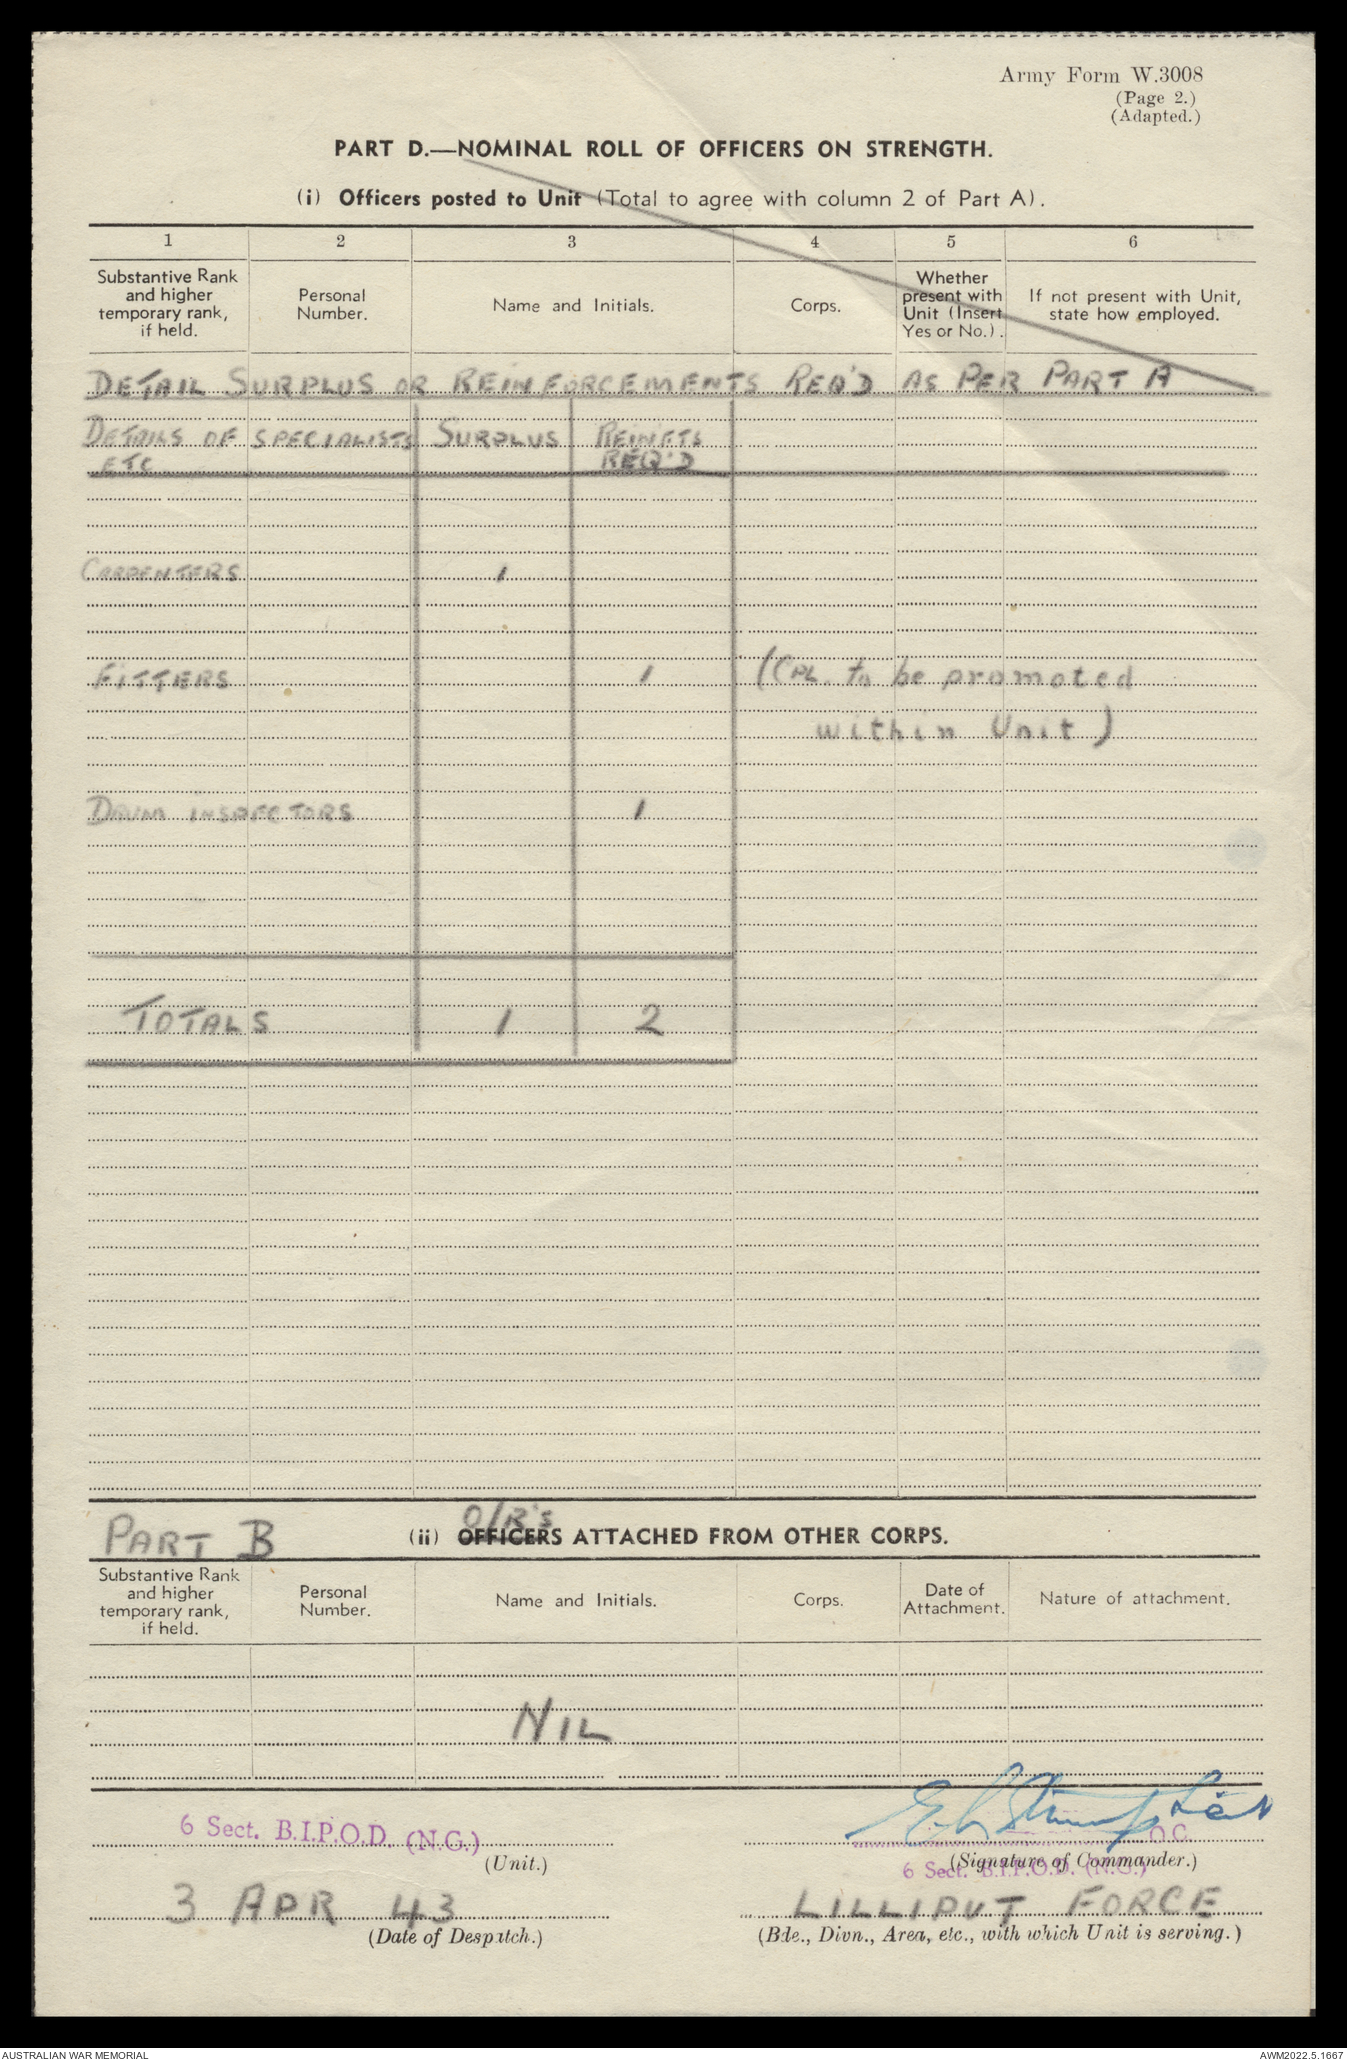 Army Form W.3008
(Page 2.)
(Adapted.)
PART D.—NOMINAL ROLL OF OFFICERS ON STRENGTH.
(i) Officers posted to Unit (Total to agree with column 2 of Part A).
1 2 3 4 5 6
Substantive Rank and higher temporary rank, if held. Personal Number. Name and Initials. Corps. Whether present with Unit (Insert Yes or No.). If not present with Unit, state how employed.
DETAIL SURPLUS OR REINFORCEMENTS REQ'D AS PER PART A
DETAILS OF SPECIALISTS SURPLUS REINFTS
ETC REQ'D
CARPENTERS 1
FITTERS 1 (CPL. to be promoted
within Unit)
DRUM INSPECTORS 1
TOTALS 1 2
O/R's
PART B (ii) OFFICERS ATTACHED FROM OTHER CORPS.
Substantive Rank and higher temporary rank, if held. Personal Number. Name and Initials. Corps. Date of Attachment. Nature of attachment.
NIL
6 Sect. B.I.P.O.D. (N.G.) O.C.
(Unit.) (Signature of Commander.)
6 Sect. B.I.P.O.D. (N.G.)
3 APR 43 LILLIPUT FORCE
(Date of Despatch.) (Bde., Divn., Area, etc., with which Unit is serving.)
AUSTRALIAN WAR MEMORIAL AWM2022.5.1667